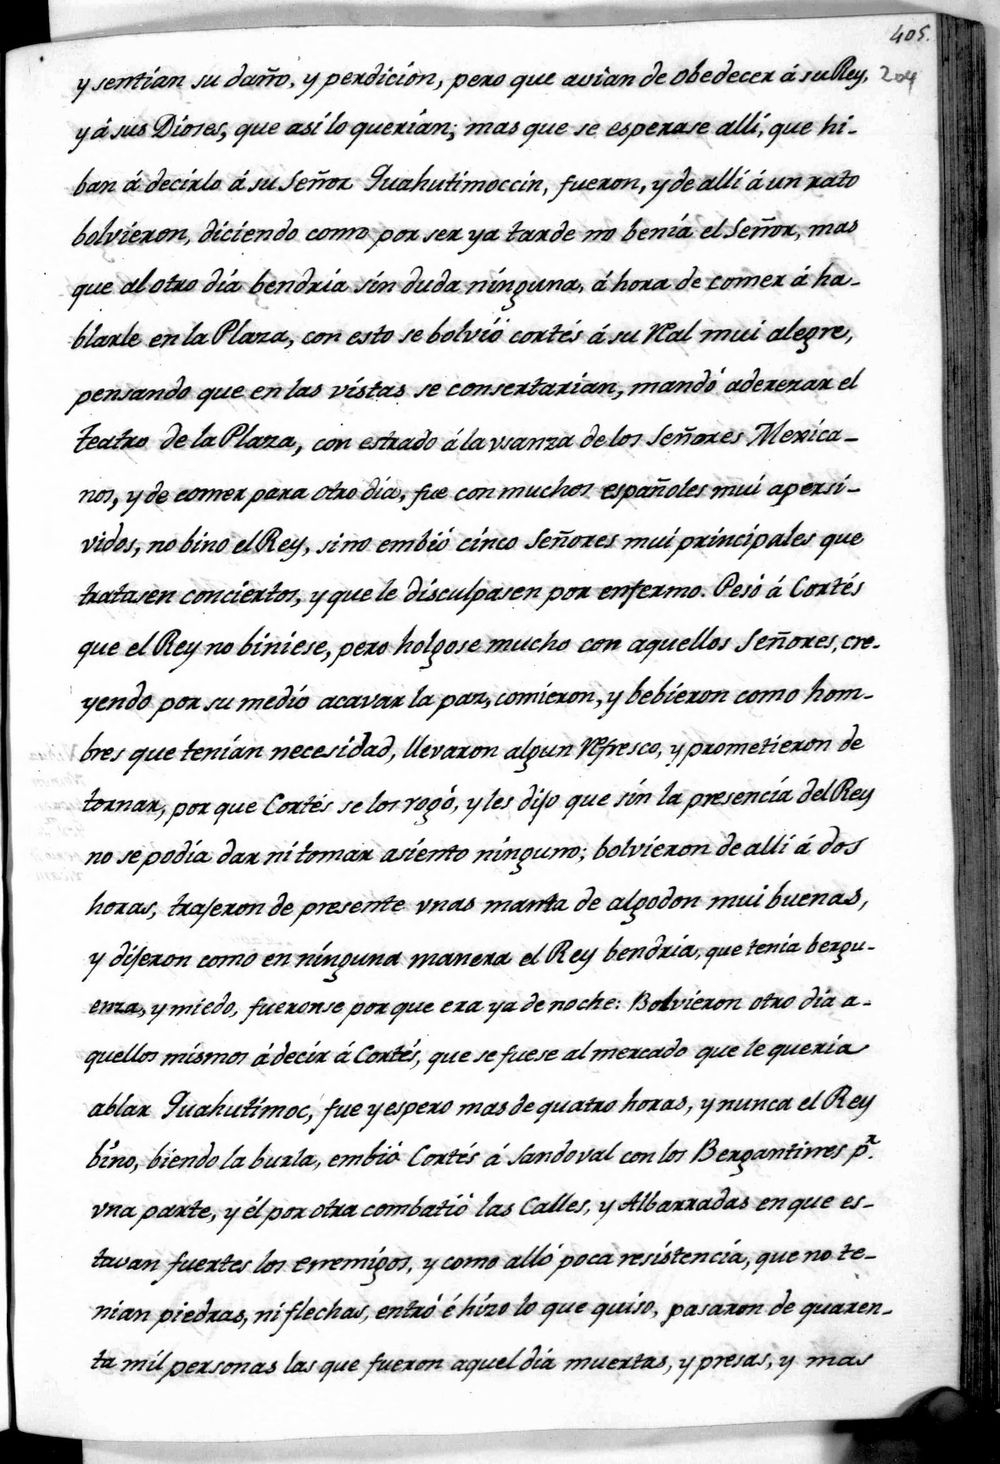 405.
204
y sentian su daño, y perdicion, pero que avian de obedecer á su Rey,
y á sus Dioses, que asi lo querian; mas que se esperase alli, que hi-
ban á decirlo á su Señor Quahutimoccin, fueron, y de alli á un rato
bolvieron, diciendo como por ser ya tarde no benia el Señor, mas
que al otro dia bendria sin duda ninguna, á hora de comer á ha-
blarle en la Plaza, con esto se bolvió cortés á su Real mui alegre,
pensando que en las vistas se consertarian, mandó aderezar el
teatro de la Plaza, con estrado á la vsanza de los Señores Mexica-
nos, y de comer para otro dia, fue con muchos españoles mui apersi-
vidos, no bino el Rey, sino embió cinco Señores mui principales que
tratasen conciertos, y que le disculpasen por enfermo. Pesó á Cortés
que el Rey no biniese, pero holgose mucho con aquellos Señores, cre-
yendo por su medio acavar la paz, comieron, y bebieron como hom-
bres que tenian necesidad, llevaron algun Refresco, y prometieron de
tornar, por que Cortés se los rogó, y les dijo que sin la presencia del Rey
no se podia dar ni tomar asiento ninguno; bolvieron de alli á dos
horas, trajeron de presente vnas manta de algodon mui buenas,
y dijeron como en ninguna manera el Rey bendria, que tenia bergu-
enza, y miedo, fueronse por que era ya de noche: Bolvieron otro dia a-
quellos mismos á decir á Cortés, que se fuese al mercado que le queria
ablar Quahutimoc, fue y espero mas de quatro horas, y nunca el Rey
bino, biendo la burla, embió Cortés á Sandoval con los Bergantines pr.
vna parte, y él por otra combatió las Calles, y Albarradas en que es-
tavan fuertes los enemigos, y como alló poca resistencia, que no te-
nian piedras, ni flechas, entró é hizo lo que quiso, pasaron de quaren-
ta mil personas las que fueron aquel dia muertas, y presas, y mas